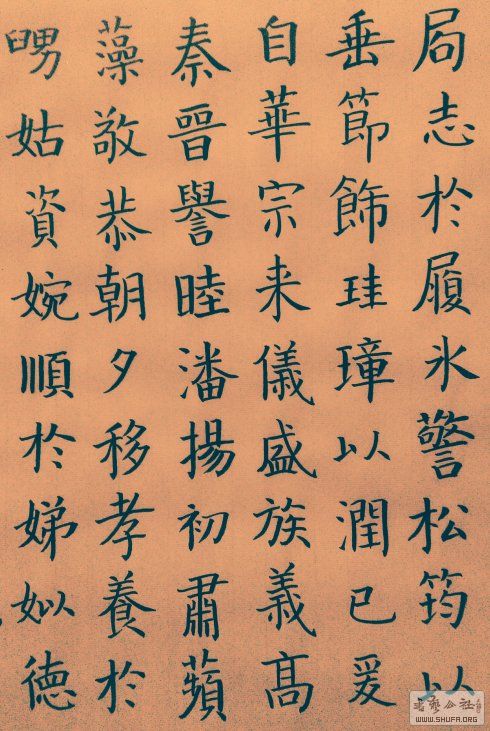 局志於履氷警松筠以
垂節飾珪璋以潤已爰
自華宗来儀盛族義髙
秦晉譽睦潘揚初肅蘋
藻敬恭朝夕移孝養於
舅姑資婉順於娣姒德
書藝公社
WWW.SHUFA.ORG